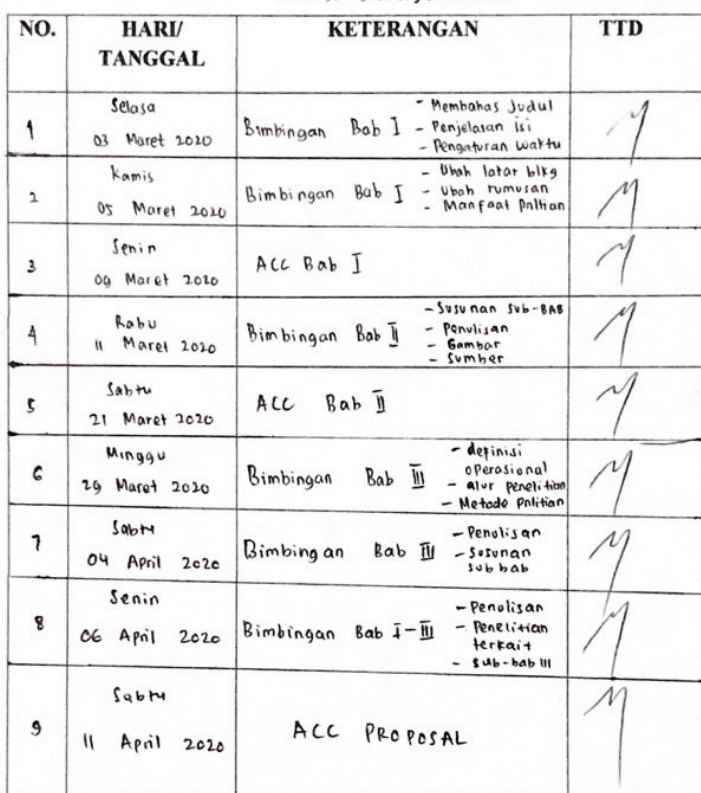 NO. HARI/ TANGGAL KETERANGAN TTD
1 Selasa 03 Maret 2020 Bimbingan Bab I - Membahas Judul
- Penjelasan isi
- Pengaturan waktu
2 Kamis 05 Maret 2020 Bimbingan Bab I - Ubah latar blkg
- Ubah rumusan
- Manfaat Pnltian
3 Senin 09 Maret 2020 ACC Bab I
4 Rabu 11 Maret 2020 Bimbingan Bab II - Susunan Sub-BAB
- Penulisan
- Gambar
- Sumber
5 Sabtu 21 Maret 2020 ACC Bab II
6 Minggu 29 Maret 2020 Bimbingan Bab III - definisi
operasional
- alur penelitian
- Metode Pnlitian
7 Sabtu 04 April 2020 Bimbingan Bab III - Penulisan
- Susunan
sub bab
8 Senin 06 April 2020 Bimbingan Bab I-III - Penulisan
- Penelitian
terkait
- sub-bab III
9 Sabtu 11 April 2020 ACC PROPOSAL